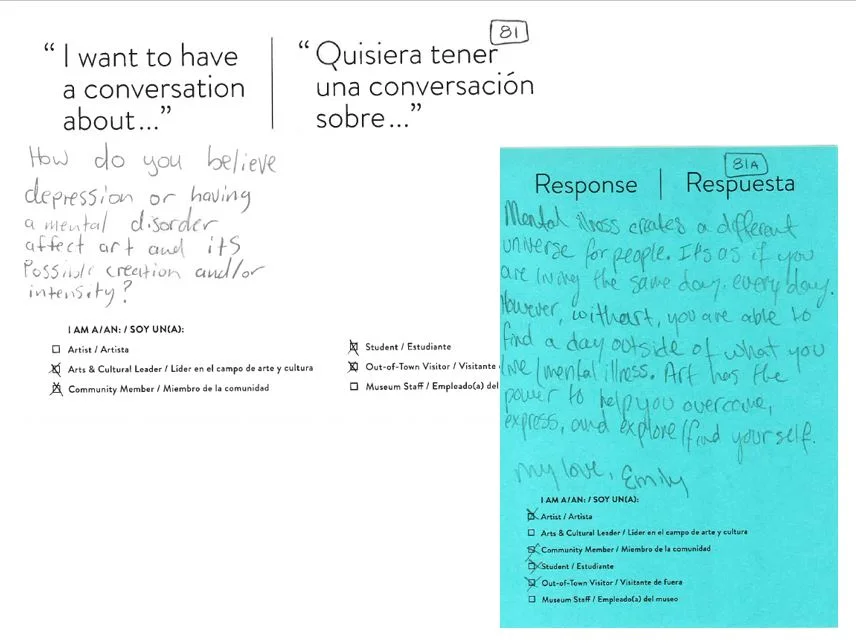 81
“ I want to have
a conversation
about...”
“ Quisiera tener
una conversación
sobre...”
How do you believe
depression or having
a mental disorder
affect art and its
Possible creation and/or
intensity?
I AM A/AN: / SOY UN(A):
Artist / Artista
Arts & Cultural Leader / Líder en el campo de arte y cultura
Community Member / Miembro de la comunidad
Student / Estudiante
Out-of-Town Visitor / Visitante
Museum Staff / Empleado(a) del
81A
Response | Respuesta
Mental illness creates a different
universe for people. It's as if you
are living the same day. every day.
However, with art, you are able to
find a day outside of what you
live/mental illness. Art has the
power to help you overcome,
express, and explore/find yourself.
my love, Emily
I AM A/AN: / SOY UN(A):
Artist / Artista
Arts & Cultural Leader / Líder en el campo de arte y cultura
Community Member / Miembro de la comunidad
Student / Estudiante
Out-of-Town Visitor / Visitante de fuera
Museum Staff / Empleado(a) del museo